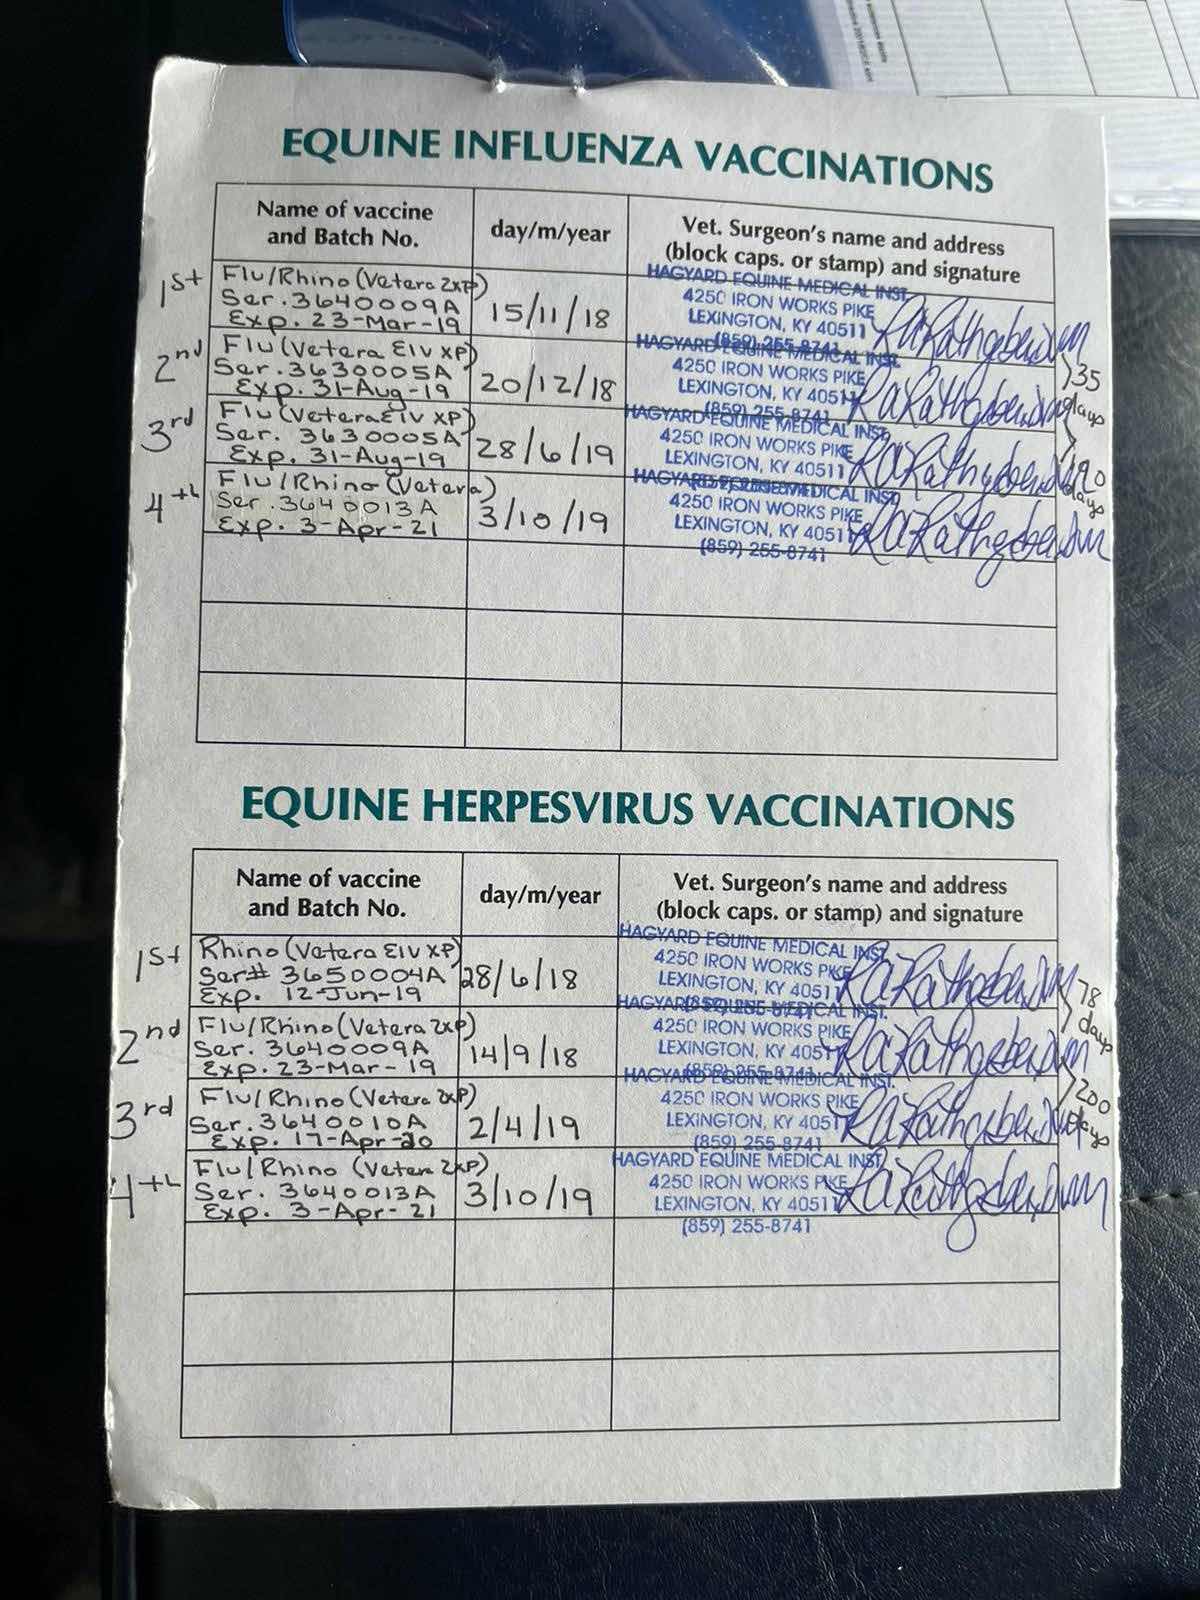 EQUINE INFLUENZA VACCINATIONS
Name of vaccine and Batch No.
day/m/year
Vet. Surgeon's name and address (block caps. or stamp) and signature
1st
Flu/Rhino (Vetera 2XP)
Ser. 3640009A
Exp. 23-Mar-19
15/11/18
HAGYARD EQUINE MEDICAL INST.
4250 IRON WORKS PIKE
LEXINGTON, KY 40511
(859) 255-8741
2nd
Flu (Vetera EIV XP)
Ser. 3630005A
Exp. 31-Aug-19
20/12/18
HAGYARD EQUINE MEDICAL INST.
4250 IRON WORKS PIKE
LEXINGTON, KY 40511
(859) 255-8741
35 days
3rd
Flu (Vetera EIV XP)
Ser. 3630005A
Exp. 31-Aug-19
28/6/19
HAGYARD EQUINE MEDICAL INST.
4250 IRON WORKS PIKE
LEXINGTON, KY 40511
days
4th
Flu/Rhino (Vetera)
Ser. 3640013A
Exp. 3-Apr-21
3/10/19
HAGYARD EQUINE MEDICAL INST.
4250 IRON WORKS PIKE
LEXINGTON, KY 40511
(859) 255-8741
EQUINE HERPESVIRUS VACCINATIONS
Name of vaccine and Batch No.
day/m/year
Vet. Surgeon's name and address (block caps. or stamp) and signature
1st
Rhino (Vetera EIV XP)
Ser# 3650004A
Exp. 12-Jun-19
28/6/18
HAGYARD EQUINE MEDICAL INST.
4250 IRON WORKS PIKE
LEXINGTON, KY 40511
78 days
2nd
Flu/Rhino (Vetera 2XP)
Ser. 3640009A
Exp. 23-Mar-19
14/9/18
HAGYARD EQUINE MEDICAL INST.
4250 IRON WORKS PIKE
LEXINGTON, KY 40511
(859) 255-8741
200 days
3rd
Flu/Rhino (Vetera 2XP)
Ser. 3640010A
Exp. 17-Apr-20
2/4/19
HAGYARD EQUINE MEDICAL INST.
4250 IRON WORKS PIKE
LEXINGTON, KY 40511
(859) 255-8741
4th
Flu/Rhino (Vetera 2XP)
Ser. 3640013A
Exp. 3-Apr-21
3/10/19
HAGYARD EQUINE MEDICAL INST.
4250 IRON WORKS PIKE
LEXINGTON, KY 40511
(859) 255-8741